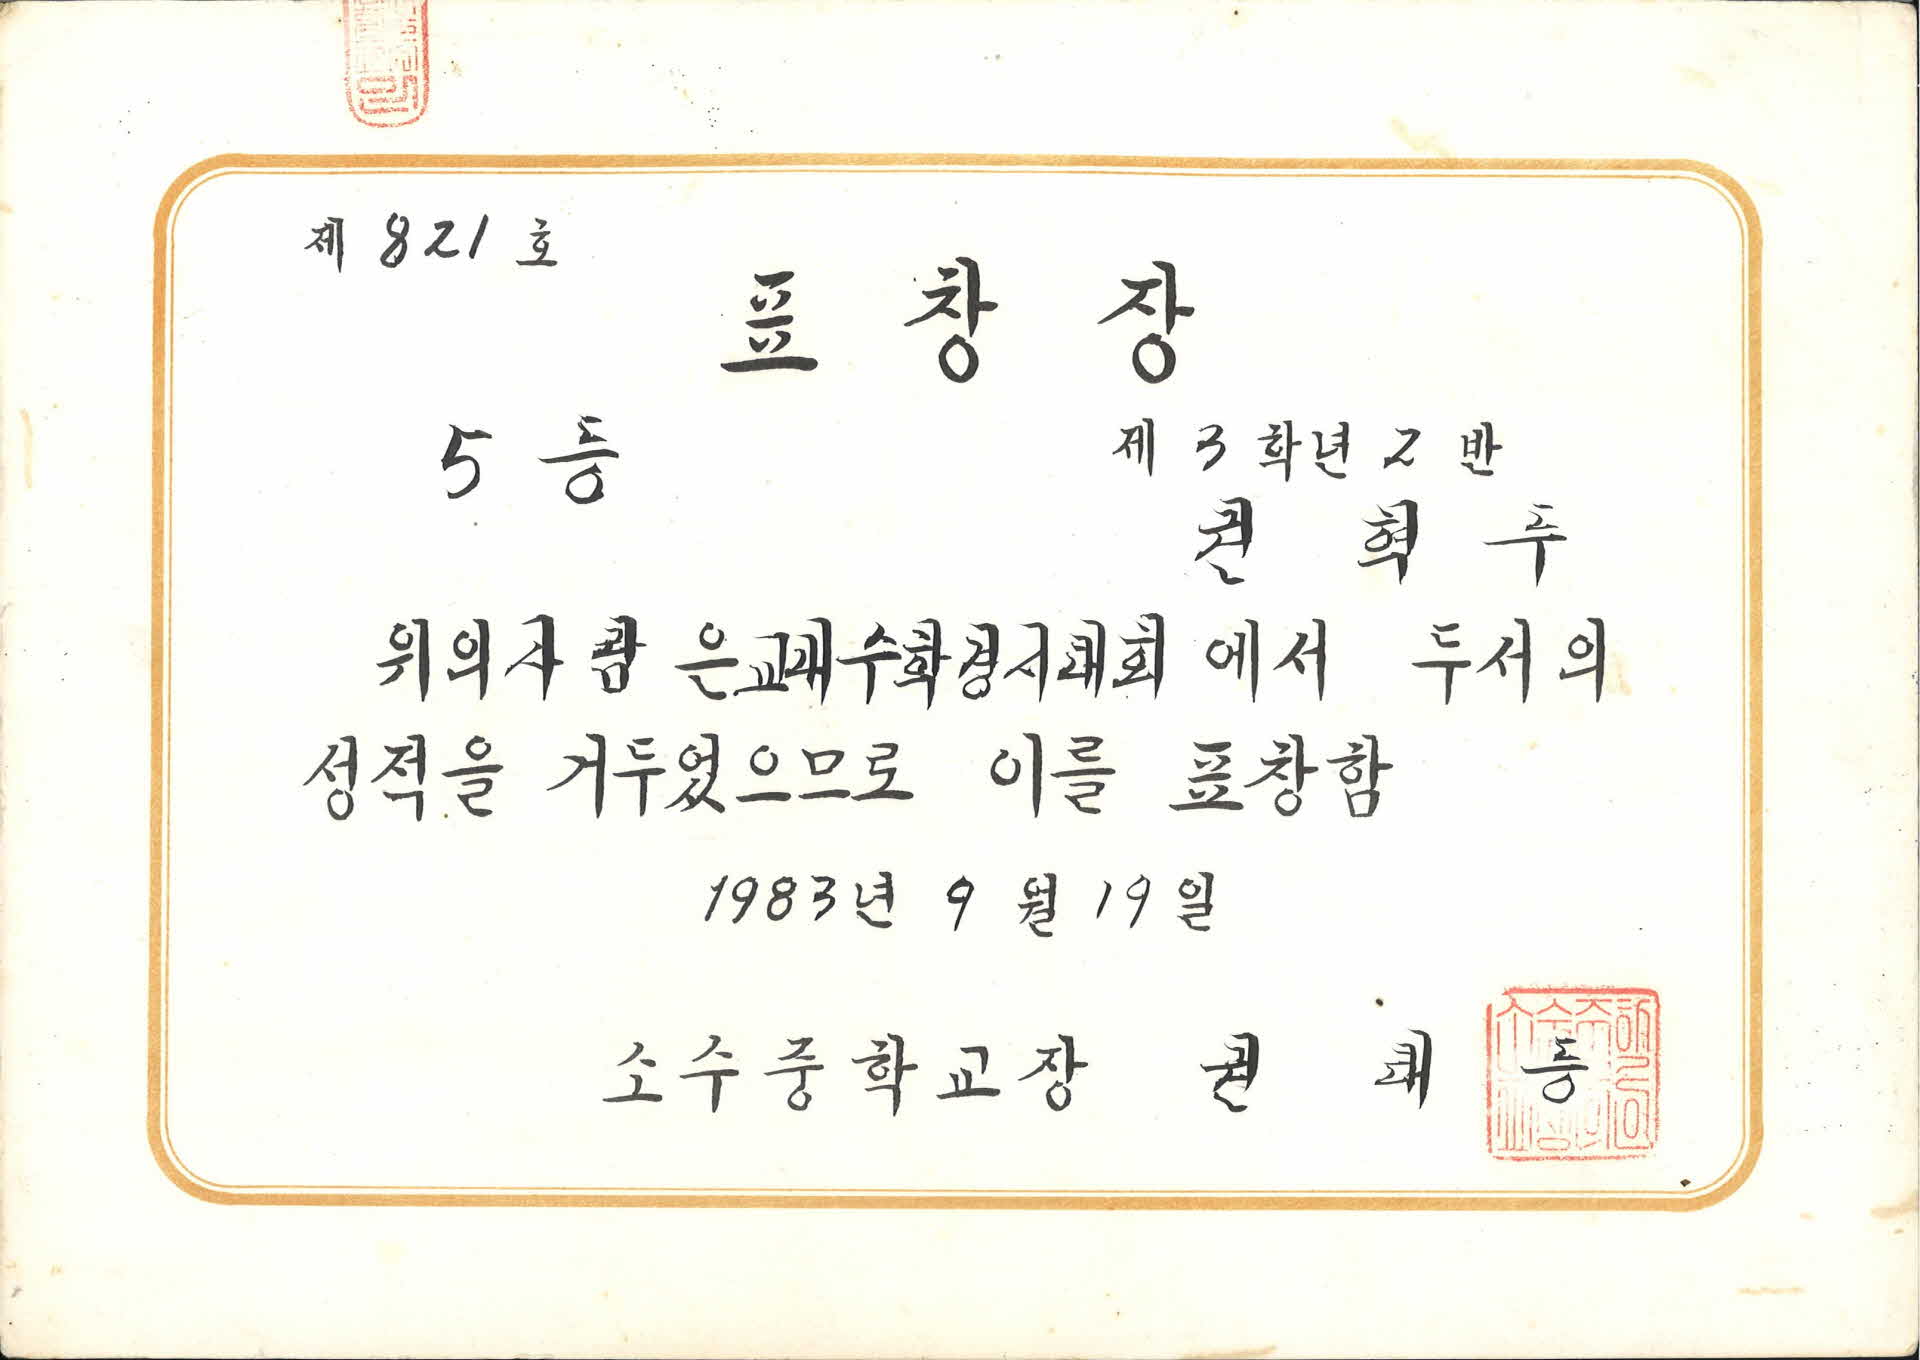 제 821 호
표 창 장
5 등
제 3 학년 2 반
권 혁 두
위의 사람 은 교내수학경시대회 에서 두서의
성적을 거두었으므로 이를 표창함
1983년 9 월 19 일
소수중학교장 권 태 등